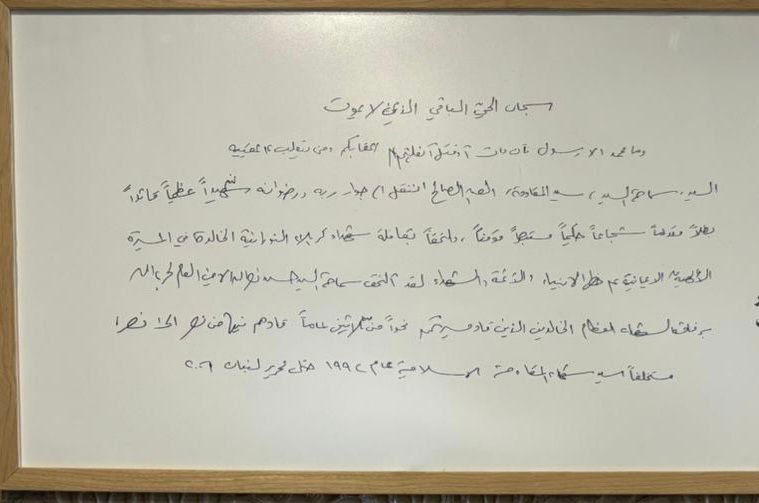 سبحان الحي الباقي الذي لا يموت
وما محمد الا رسول فان مات أو قتل انقلبتم أعقابكم ومن ينقلب على عقبيه
السيد، سماحة السيد، سيد المقاومة، العبد الصالح انتقل الى جوار ربه ورضوانه شهيداً عظيماً قائداً
بطلاً مقداماً شجاعاً حكيماً مستبصراً مؤمناً، ملتحقاً بقافلة شهداء كربلاء النورانية الخالدة في المسيرة
الإلهية الايمانية على خطى الانبياء والأئمة والشهداء لقد التحق سماحة السيد حسن نصرالله الامين العام لحزب الله
برفاقه الشهداء العظام الخالدين الذين قاد مسيرتهم نحواً من ثلاثين عاماً قادهم فيها من نصر الى نصر
مستخلفاً سيد شهداء المقاومة الاسلامية عام ١٩٩٢ حتى تحرير لبنان ٢٠٠